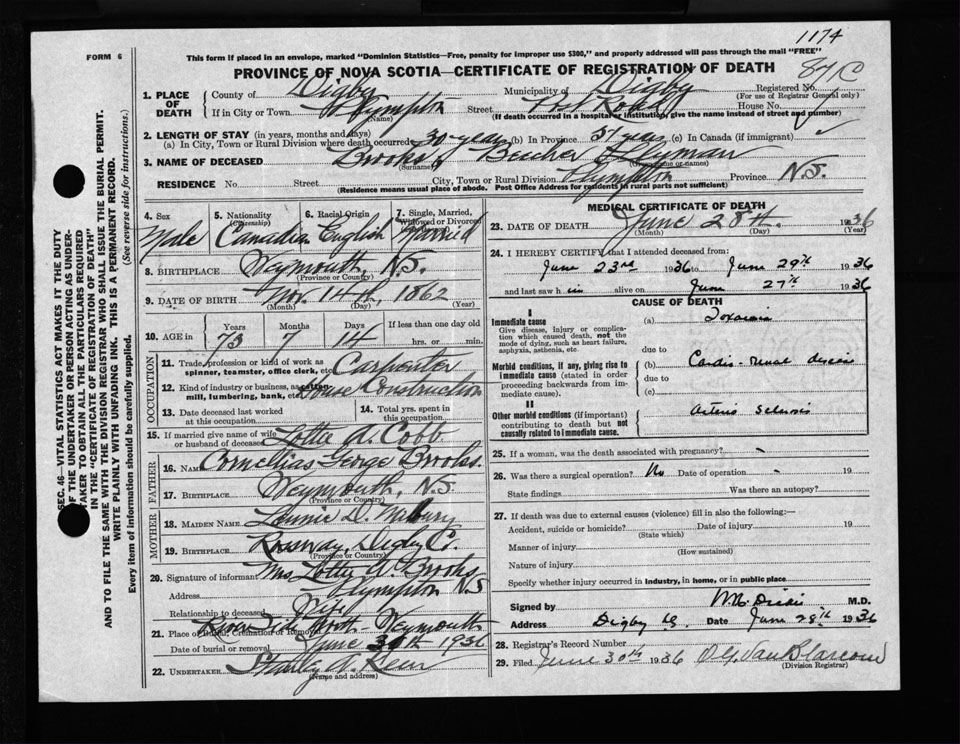 1174
FORM 6
This form if placed in an envelope, marked "Dominion Statistics—Free, penalty for improper use $300," and properly addressed will pass through the mail "FREE"
PROVINCE OF NOVA SCOTIA—CERTIFICATE OF REGISTRATION OF DEATH
87C
1. PLACE OF DEATH
County of Digby Municipality of Digby Registered No.
(For use of Registrar General only)
If in City or Town Plympton Street Post Road House No.
(Name) (If death occurred in a hospital or institution, give the name instead of street and number)
2. LENGTH OF STAY (in years, months and days)
(a) In City, Town or Rural Division where death occurred 30 years (b) In Province (c) In Canada (if immigrant)
3. NAME OF DECEASED Brooks Beecher Lyman
(Surname) (Given name or names)
RESIDENCE No. Street City, Town or Rural Division Plympton Province N.S.
(Residence means usual place of abode. Post Office Address for residents in rural parts not sufficient)
SEC. 46— VITAL STATISTICS ACT MAKES IT THE DUTY
OF THE UNDERTAKER OR PERSON ACTING AS UNDER-
TAKER TO OBTAIN ALL THE PARTICULARS REQUIRED
IN THE "CERTIFICATE OF REGISTRATION OF DEATH"
AND TO FILE THE SAME WITH THE DIVISION REGISTRAR WHO SHALL ISSUE THE BURIAL PERMIT.
WRITE PLAINLY WITH UNFADING INK. THIS IS A PERMANENT RECORD.
Every item of information should be carefully supplied. (See reverse side for instructions.)
4. Sex 5. Nationality (Citizenship) 6. Racial Origin 7. Single, Married, Widowed or Divorced
Male Canadian English Married
8. BIRTHPLACE Weymouth, N.S.
(Province or Country)
9. DATE OF BIRTH Nov. 14th, 1862
(Month) (Day) (Year)
10. AGE in Years Months Days If less than one day old
73 7 14 hrs. or min.
OCCUPATION
11. Trade, profession or kind of work as spinner, teamster, office clerk, etc. Carpenter
12. Kind of industry or business, as cotton mill, lumbering, bank, etc. House Construction
13. Date deceased last worked at this occupation 14. Total yrs. spent in this occupation
15. If married give name of wife or husband of deceased Lotta A. Cobb
FATHER
16. NAME Cornelius George Brooks.
17. BIRTHPLACE Weymouth, N.S.
(Province or Country)
MOTHER
18. MAIDEN NAME D.
19. BIRTHPLACE Rossway, Digby Co.
(Province or Country)
20. Signature of informant Mrs. Lotta A. Brooks
Address Plympton N.S
Relationship to deceased Wife
21. Place of Burial, Cremation or Removal River Side North Weymouth
Date of burial or removal June 30th 1936
22. UNDERTAKER Stanley
(Name and address)
MEDICAL CERTIFICATE OF DEATH
23. DATE OF DEATH June 28th. 1936
(Month) (Day) (Year)
24. I HEREBY CERTIFY that I attended deceased from:
June 23rd 1936 to June 29th 1936
and last saw him alive on June 27th 1936
CAUSE OF DEATH
I
Immediate cause (a) Toxaemia
Give disease, injury or complication which caused death, not the mode of dying, such as heart failure, asphyxia, asthenia, etc.
due to
Morbid conditions, if any, giving rise to immediate cause (stated in order proceeding backwards from immediate cause).
(b) Cardio-renal disease
due to
(c)
II
Other morbid conditions (if important) contributing to death but not causally related to immediate cause.
Arterio sclerosis
25. If a woman, was the death associated with pregnancy? -
26. Was there a surgical operation? No Date of operation - 19
State findings Was there an autopsy?
27. If death was due to external causes (violence) fill in also the following:—
Accident, suicide or homicide? Date of injury 19
(State which)
Manner of injury
(How sustained)
Nature of injury
Specify whether injury occurred in industry, in home, or in public place
Signed by M.D.
Address Digby NS Date June 28th 1936
28. Registrar's Record Number
29. Filed June 30th 1936
(Division Registrar)